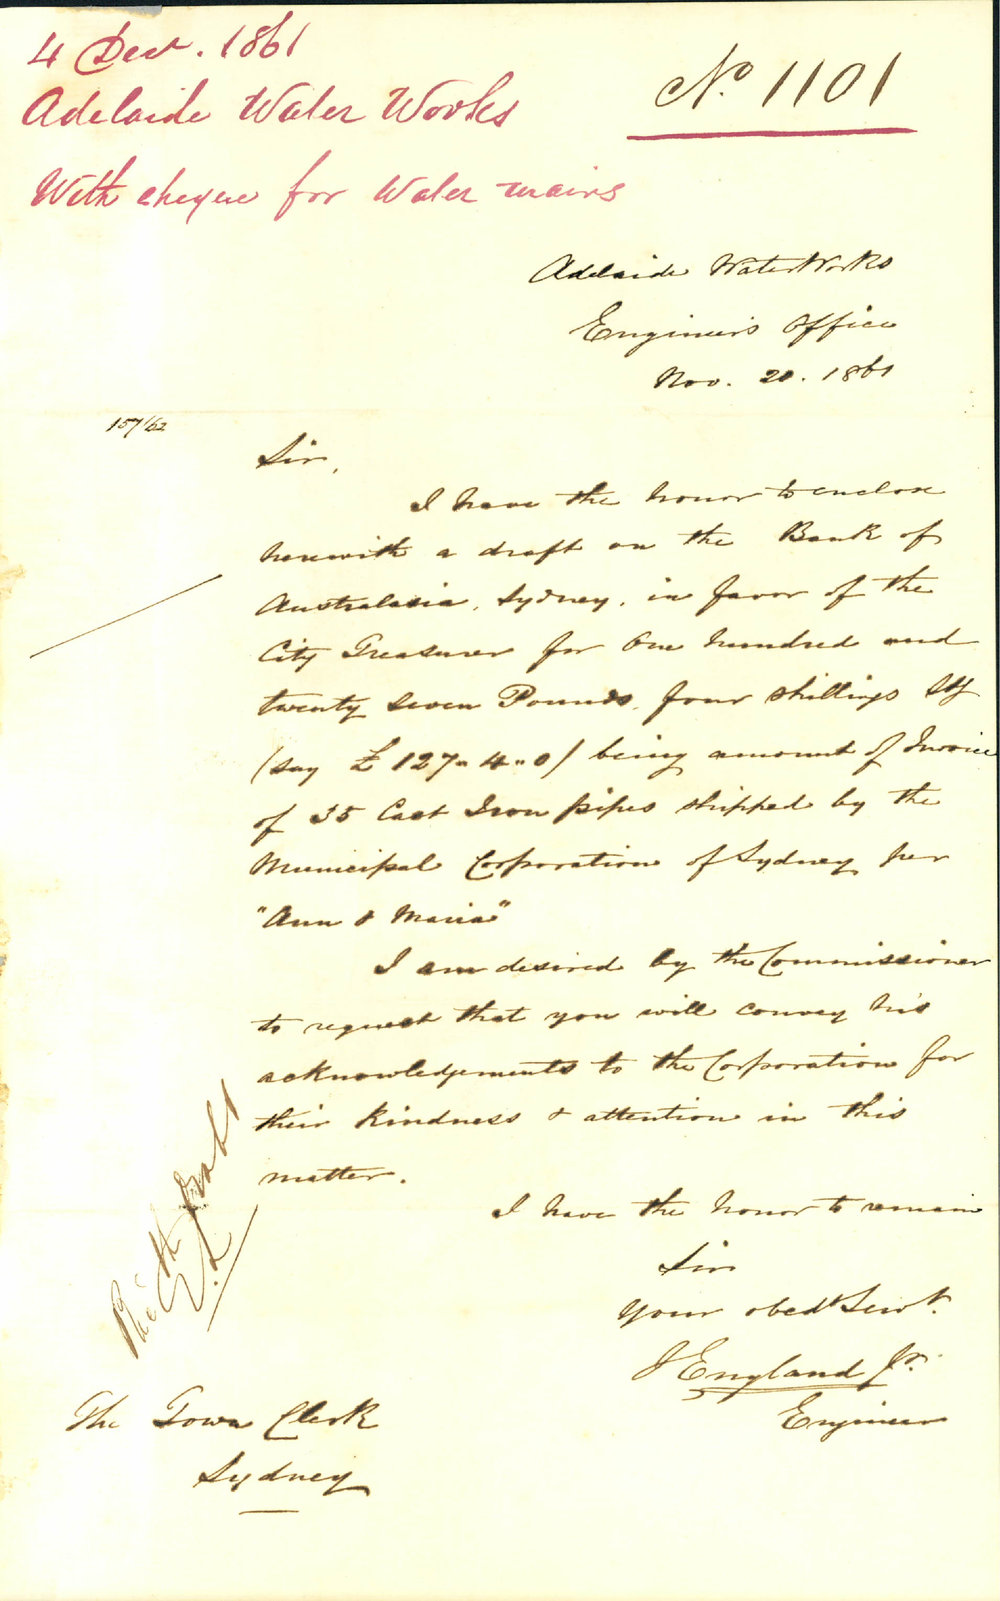 4 Decr. 1861
No. 1101
Adelaide Water Works
With cheque for Water mains
Adelaide WaterWorks
Engineer's Office
Nov. 20. 1861
157/62
Sir,
I have the honor to enclose
herewith a draft on the Bank of
Australasia, Sydney, in favor of the
City Treasurer for One hundred and
twenty seven Pounds, four shillings Stg
(say £127" 4" 0) being amount of Invoice
of 35 Cast Iron pipes shipped by the
Municipal Corporation of Sydney per
"Ann & Maria"
I am desired by the Commissioner
to request that you will convey his
acknowledgements to the Corporation for
their kindness & attention in this
matter.
I have the honor to remain
Sir
Your obedt Servt.
J England Jr.
Engineer
The Town Clerk
Sydney